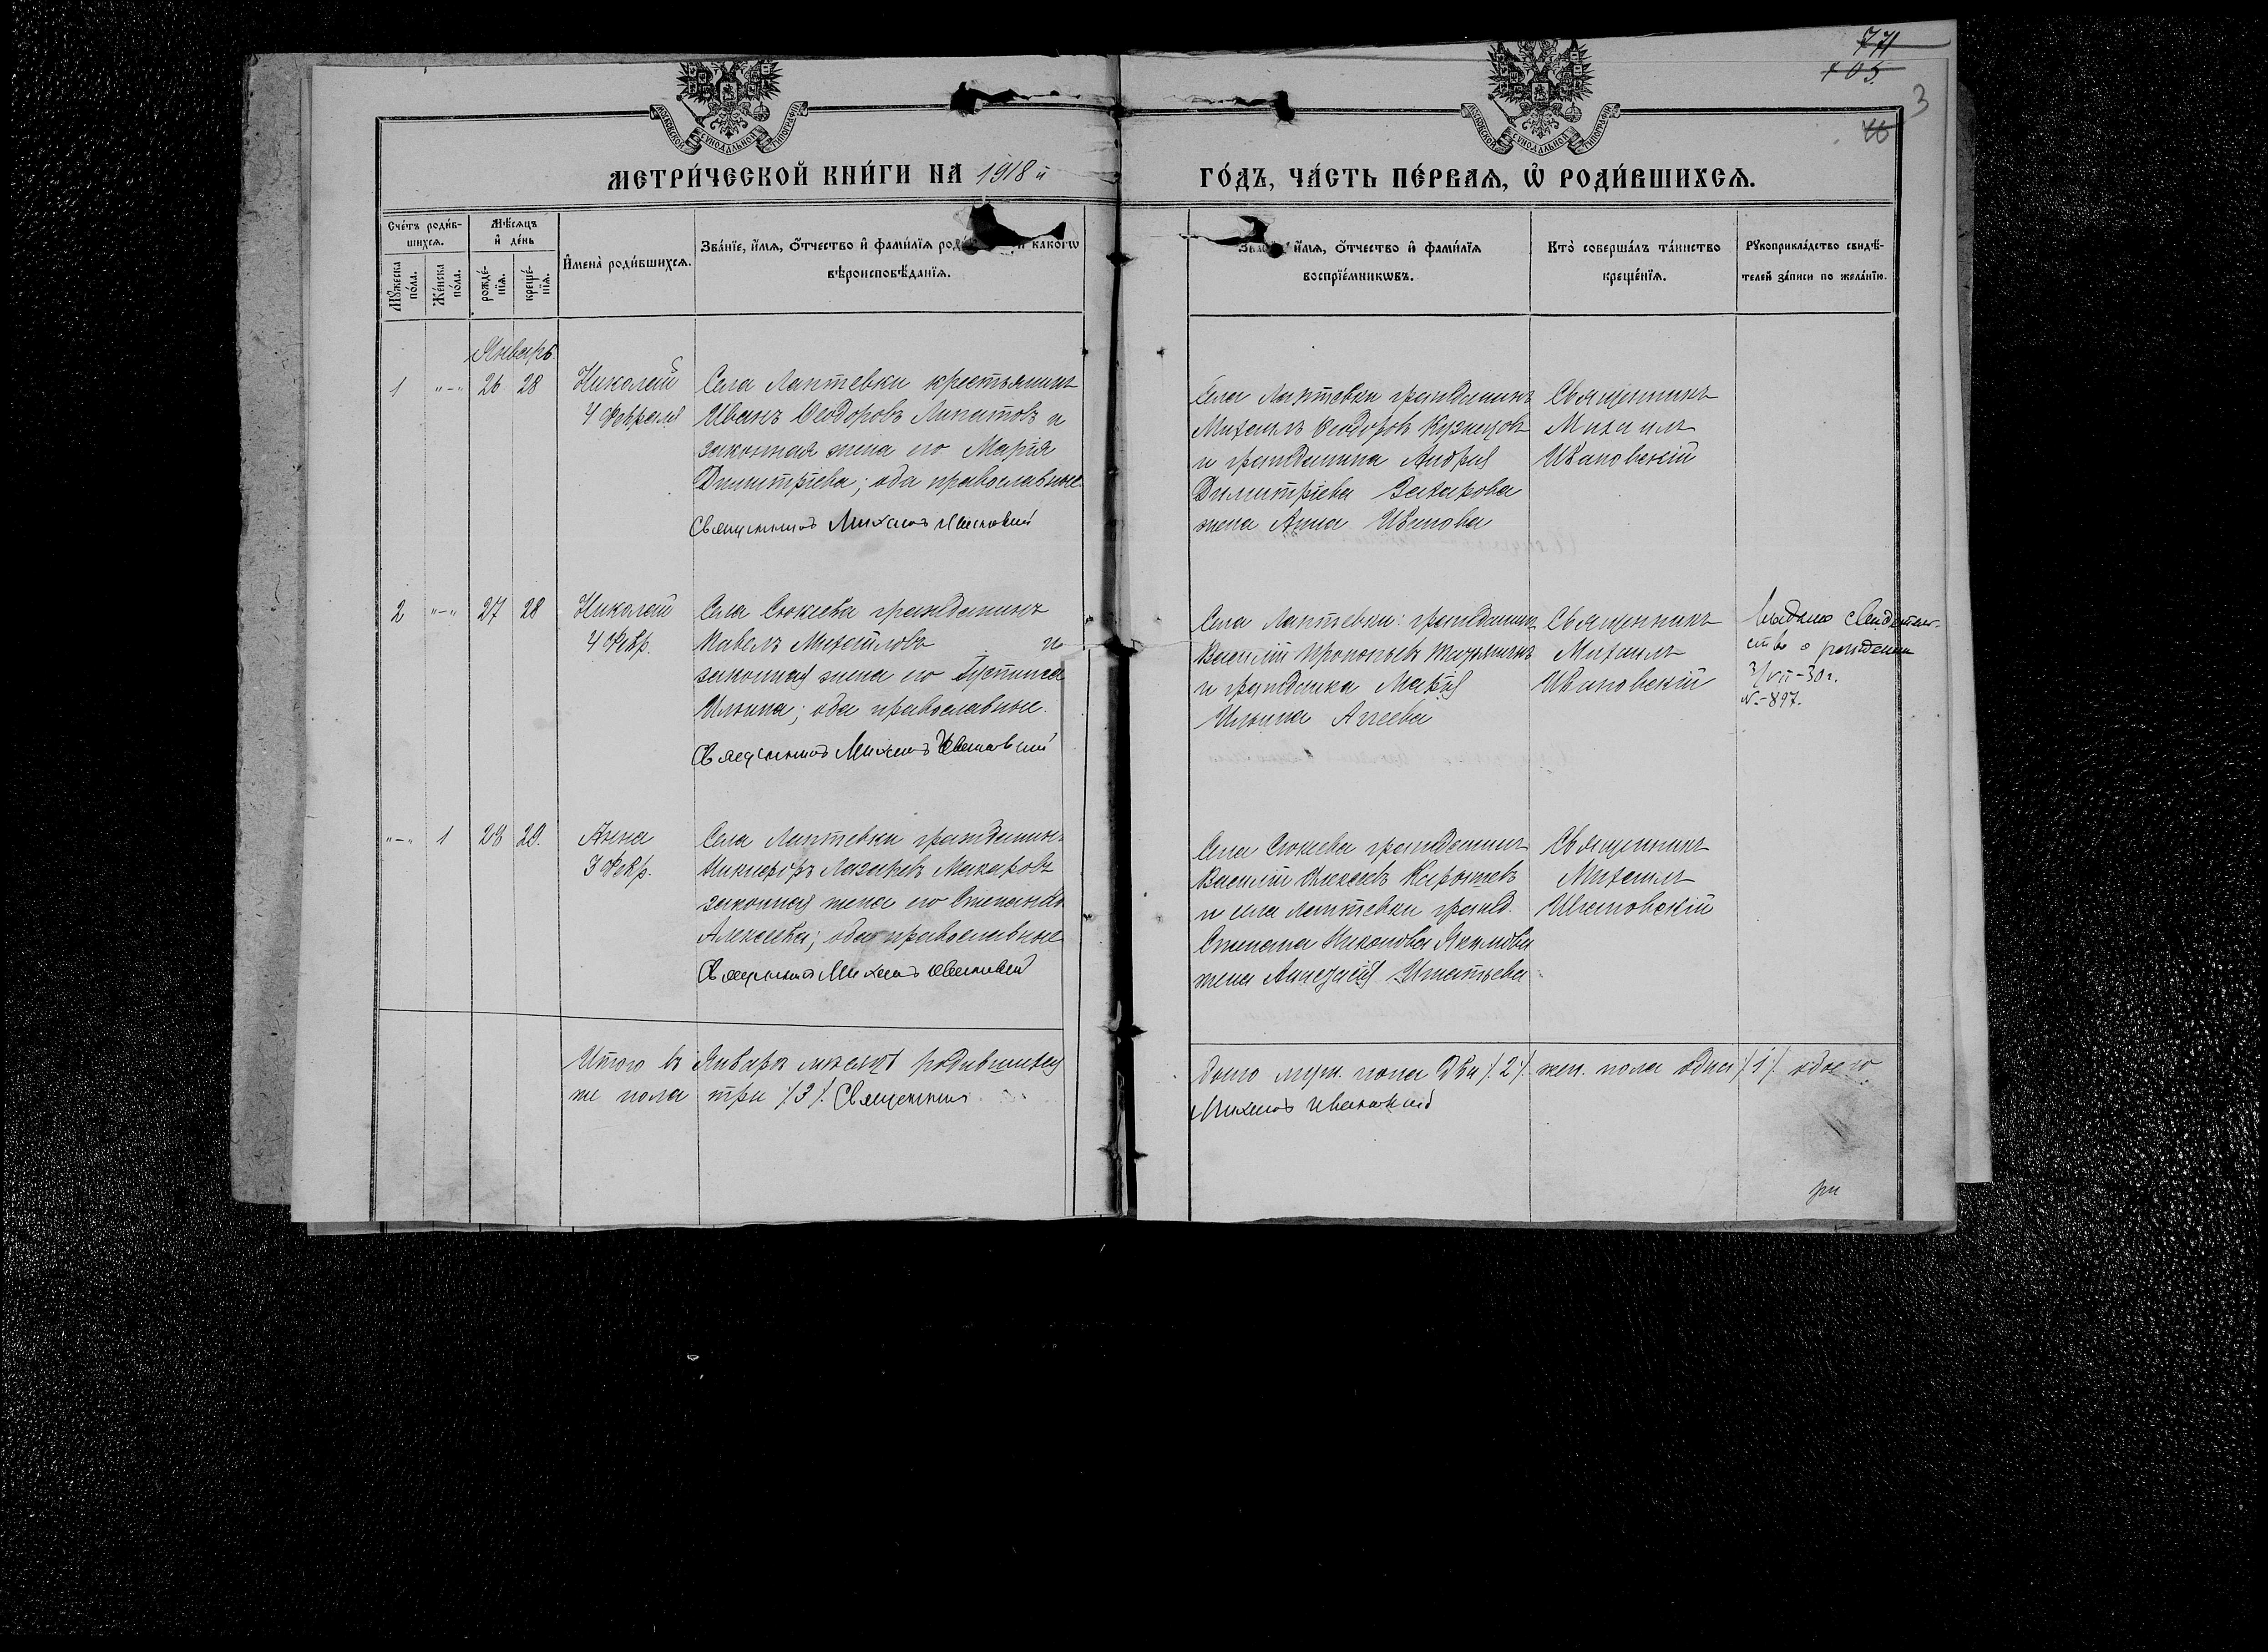 771
105
3
76
МОСКОВСКОЙ СѴНОДАЛЬНОЙ ТИПОГРАФІИ
МОСКОВСКОЙ СѴНОДАЛЬНОЙ ТИПОГРАФІИ
МЕТРИ́ЧЕСКОЙ КНИ́ГИ НА 1918 й
ГО́ДЪ, ЧА́СТЬ ПЕ́РВАЯ, Ѡ РОДИ́ВШИХСЯ.
Сче́тъ роди́в-
шихся.
Му́жеска по́ла.
Же́нска по́ла.
Мѣ́сяцъ
и де́нь
рожде́-
нїя.
креще́-
нїя.
Имена̀ роди́вшихся.
Зва́нїе, и́мя, о́тчество и фами́лїя ро и како́гѡ
вѣроисповѣ́данїя.
Зва и́мя, о́тчество и фами́лїя
воспрїе́мникѡвъ.
Кто̀ соверша́лъ та́инство
креще́нїя.
Рукоприкла́дство свидѣ́-
телей за́писи по жела́нїю.
Январь.
1 "–" 26 28 Николай
4 Февраля
Села Лаптевки крестьянинъ
Иванъ Ѳеодоровъ Липатовъ и
законная жена его Марія
Димитріева; оба православные.
Священникъ Михаилъ Ивановский
Села Лаптевки гражданинъ
Михаилъ Ѳеодоровъ Кузнецовъ
и гражданина Андрея
Димитріева Захарова
жена Анна Иванова
Священникъ
Михаилъ
Ивановскій
2 "–" 27 28 Николай
4 Февр.
Села Сюкеева гражданинъ
Павелъ Михаиловъ и
законная жена его Іустина
Ильина; оба православные.
Священникъ Михаилъ Ивановский
Села Лаптевки: гражданинъ
Василій Прокопьевъ
и гражданка Марія
Ильина Агеева
Священникъ
Михаилъ
Ивановскій
Выдано свидетель-
ство о рождении
3/VII-30 г.
№-897.
"–" 1 28 29. Анна
3 Февр.
Села Лаптевки гражданинъ
Никифоръ Лазаревъ Макаровъ
законная жена его
Алексеева; оба православные
Священникъ Михаилъ Ивановский
Села Сюкеева гражданинъ
Василій Алексеевъ
и села Лаптевки гражд.
Степана Никонова Якимова
жена Анастасія Игнатьева
Священникъ
Михаилъ
Ивановскій
Итого въ Январѣ мѣсяцѣ родившихся
же пола три /.3/. Священникъ
было муж. пола два /.2/. жен. пола одна /.1/. обоего
Михаилъ Ивановский